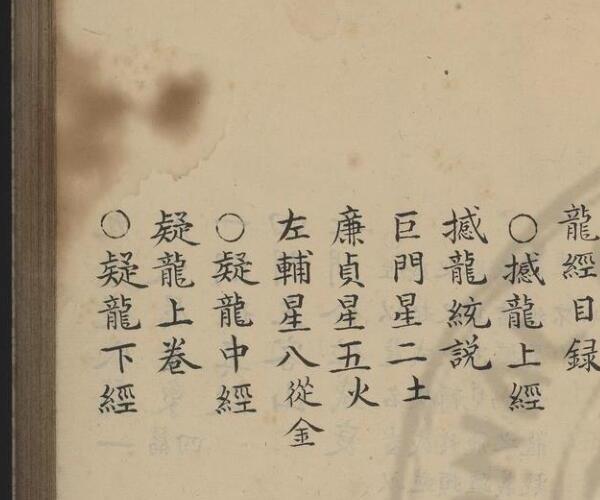 龍經目録
○撼龍上經
撼龍統説
巨門星二土
廉貞星五火
左輔星八從金
○疑龍中經
疑龍上卷
○疑龍下經